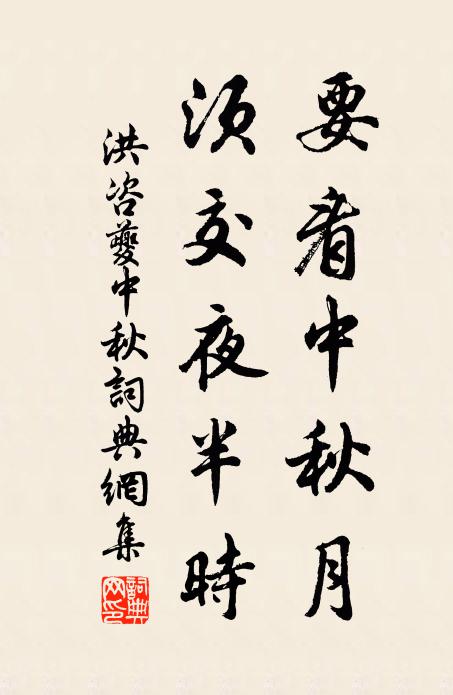 要看中秋月
須交夜半時
洪咨夔中秋詞典網集
詞典網印